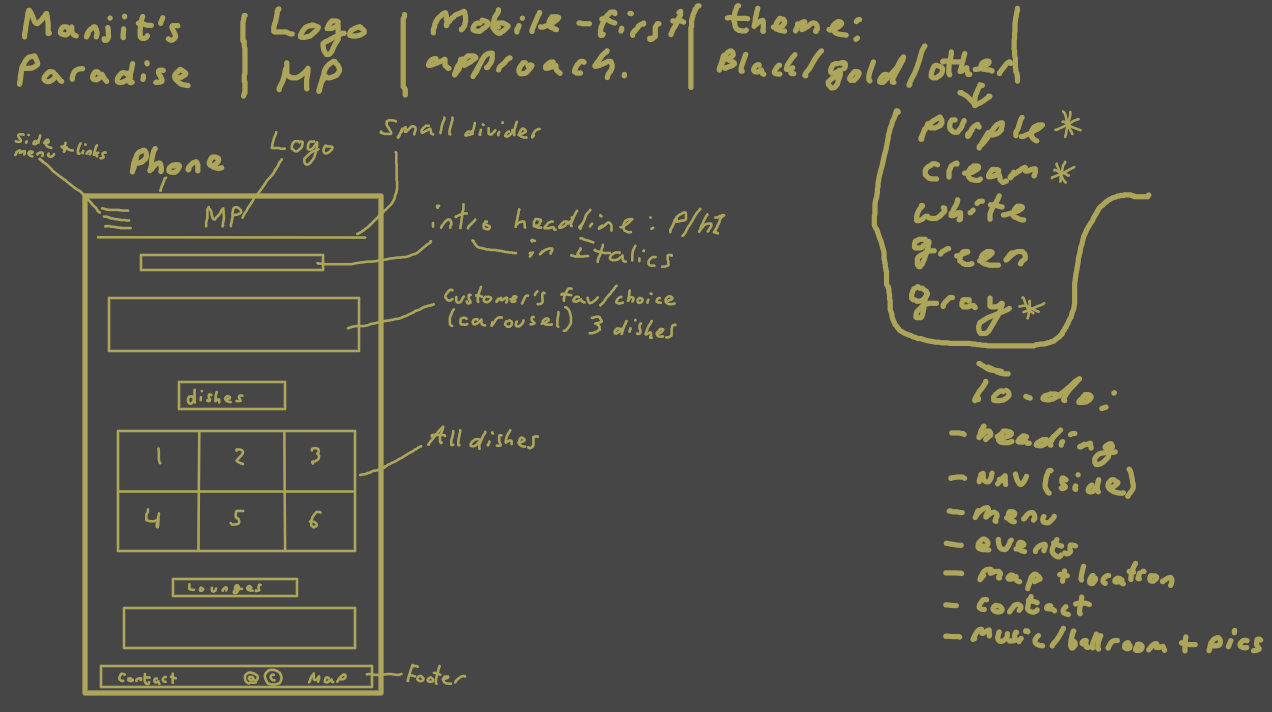 Manjit's
Paradise
Logo
MP
Mobile-first
approach.
theme:
Black/gold/other
purple *
cream *
white
green
gray *
Side
menu + links
Phone
Logo
Small divider
MP
intro headline: P/h1
in Italics
Customer's fav/choice
(carousel) 3 dishes
dishes
1 2 3
4 5 6
All dishes
Lounges
Contact @ © Map
Footer
To-do:
- heading
- NAV (side)
- menu
- events
- map + location
- contact
- music/ballroom + pics